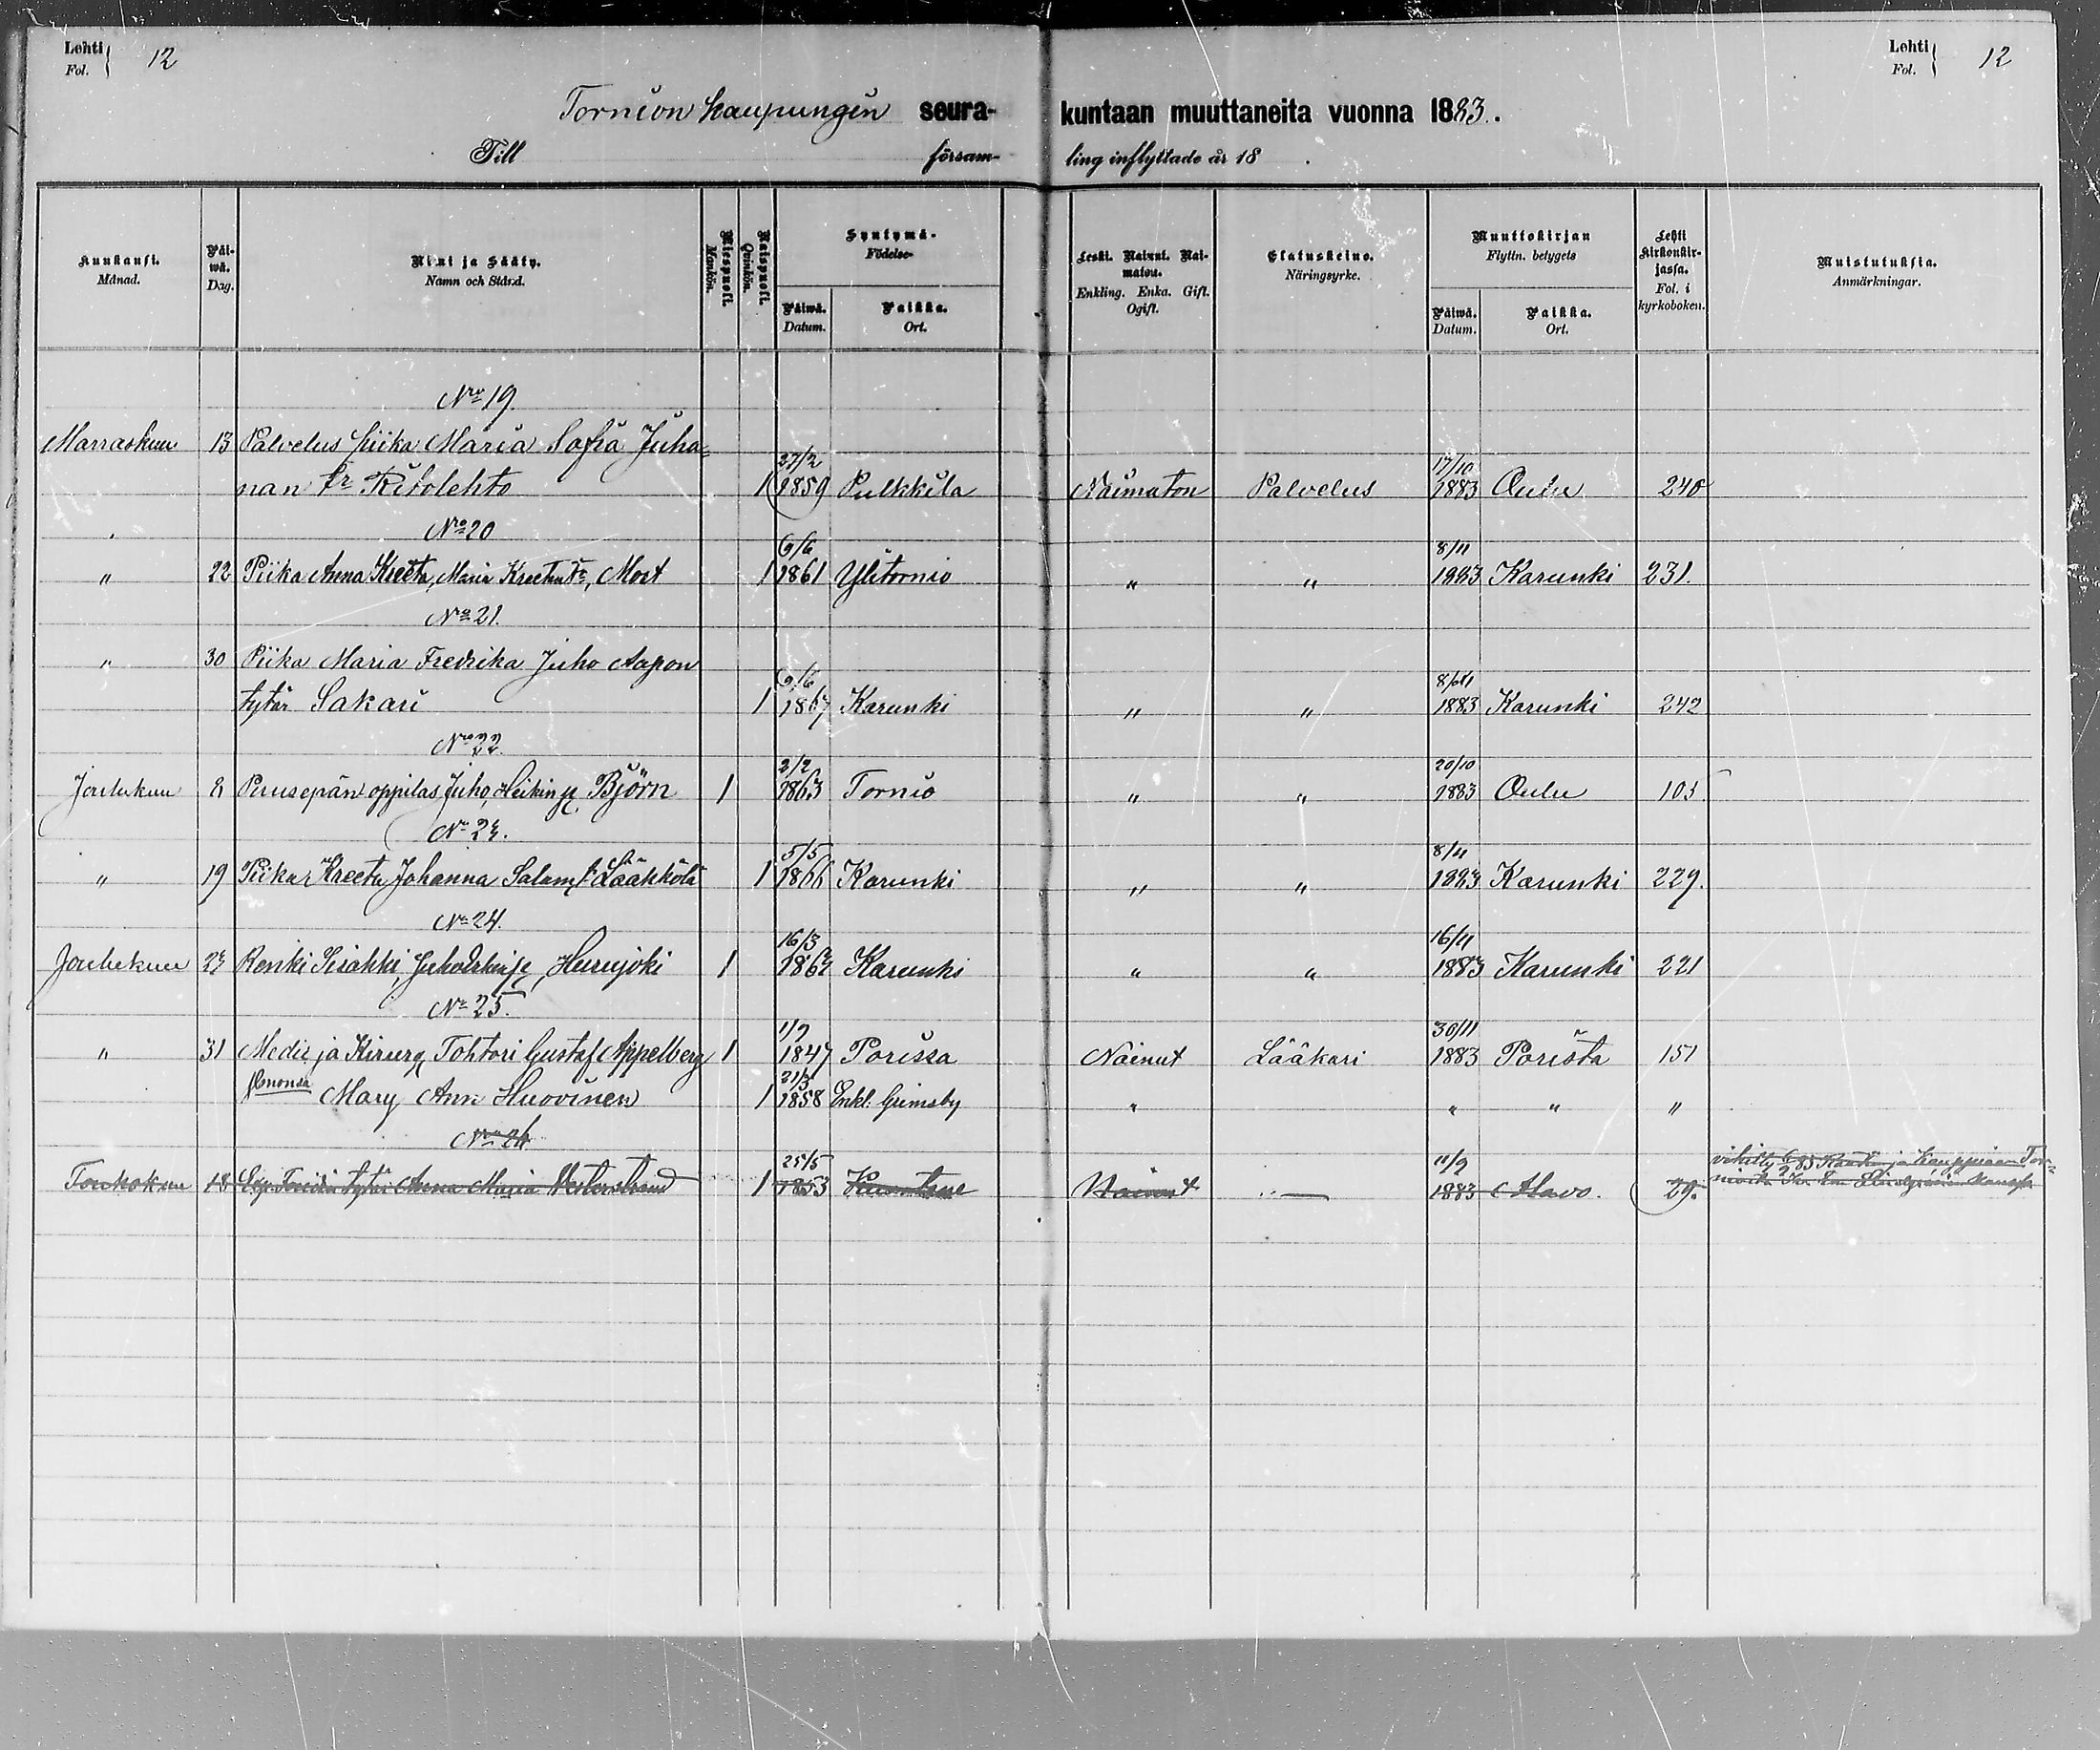 Lehti 12
Fol.
Lehti 12
Fol.
Tornion kaupungin seura- kuntaan muuttaneita vuonna 1883.
Till församling inflyttade år 18 .
Kuukausi. Månad.
Päiwä. Dag.
Nimi ja Sääty. Namn och Stånd.
Miespuoli. Mankön.
Naispuoli. Qvinkön.
Syntymä- Födelse-
Päiwä. Datum.
Paikka. Ort.
Leski. Nainut. Naimaton. Enkling. Enka. Gift. Ogift.
Elatuskeino. Näringsyrke.
Muuttokirjan Flyttn. betygets
Päiwä. Datum.
Paikka. Ort.
Lehti kirkonkirjassa. Fol. i kyrkoboken.
Muistutuksia. Anmärkningar.
Nro 19.
Marraskuu 13 Palvelus piika Maria Sofia Juha=
27/2 17/10
nan tr Ritolehto 1 1859 Pulkkila Naimaton Palvelus 1883 Oulu 240
Nro 20
6/6 8/11
" 22 Piika Anna Kreeta, Maria Kreetan tr, Mort 1 1861 Ylitornio " " 1883 Karunki 231.
Nro 21.
" 30 Piika Maria Fredrika Juho Aapon
6/6
tytär Sakari 1 1867 Karunki " " 1883 Karunki 242
Nro 22.
2/2 20/10
Joulukuu Juho, Heikin p. Björn 1 1863 Tornio " " 1883 Oulu 105
No 23.
5/5 8/11
" 19 Piika Kreeta Johanna Salam. tr Lääkkölä 1 1866 Karunki " " 1883 Karunki 229.
No 24.
16/3 16/11
Joulukuu 23 Renki Iisakki, Hurujoki 1 1862 Karunki " " 1883 Karunki 221
No 25.
1/9 30/11
" 31 Medic. ja Kirurg. Tohtori Gustaf Appelberg 1 1847 Porissa Nainut Lääkari 1883 Porista 151
21/3
Emonsa Mary Ann Huovinen 1 1858 Enkl. Grimsby " " " "
Nro 26
25/5 11/9
Toukokuu 18 tytär Anna Maria Vesterstrand 1 1853 Nainut " 1883 Alavo. 29.
vihitty 6/9 85 ja kauppiaan Tor=